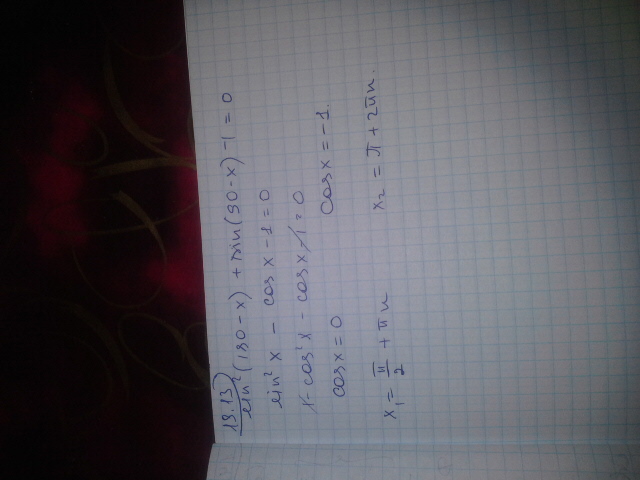 19.13)
sin²(180-x) + sin(90-x) -1 = 0
sin² x - cos x -1 = 0
1 - cos² x - cos x -1 = 0
cos x = 0 cos x = -1.
x₁ = π/2 + πn x₂ = π + 2πn.